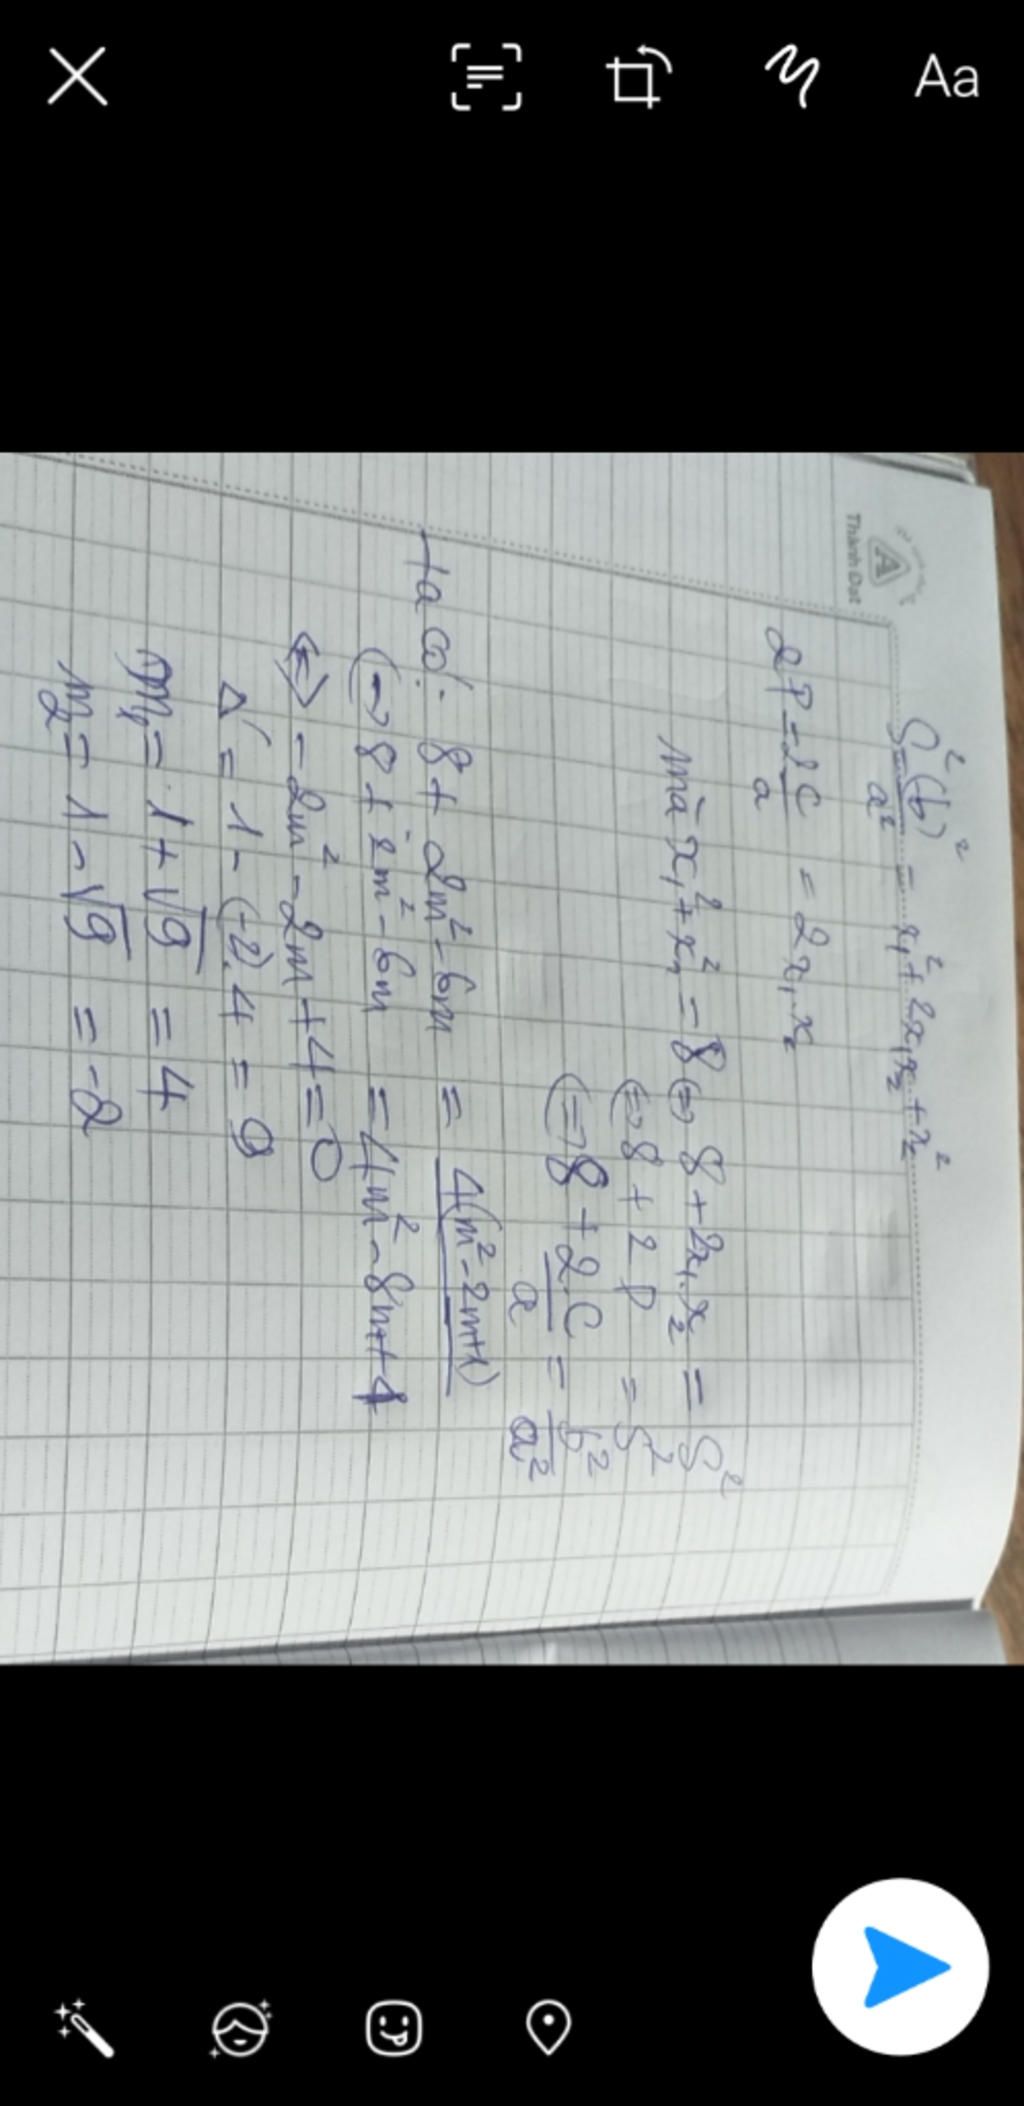 Aa
Thành Đạt
A
S² = (b)²/a² = x₁² + 2x₁x₂ + x₂²
2P = 2C/a = 2x₁.x₂
mà x₁² + x₂² = 8 (=) 8 + 2x₁.x₂ = S²
(=) 8 + 2P = S²
(=) 8 + 2.C/a = b²/a²
Ta có: 8 + 2m² - 6m = 4(m² - 2m + 1)
(=) 8 + 2m² - 6m = 4m² - 8m + 4
<=> - 2m² - 2m + 4 = 0
Δ' = 1 - (-2).4 = 9
m₁ = 1 + √9 = 4
m₂ = 1 - √9 = -2